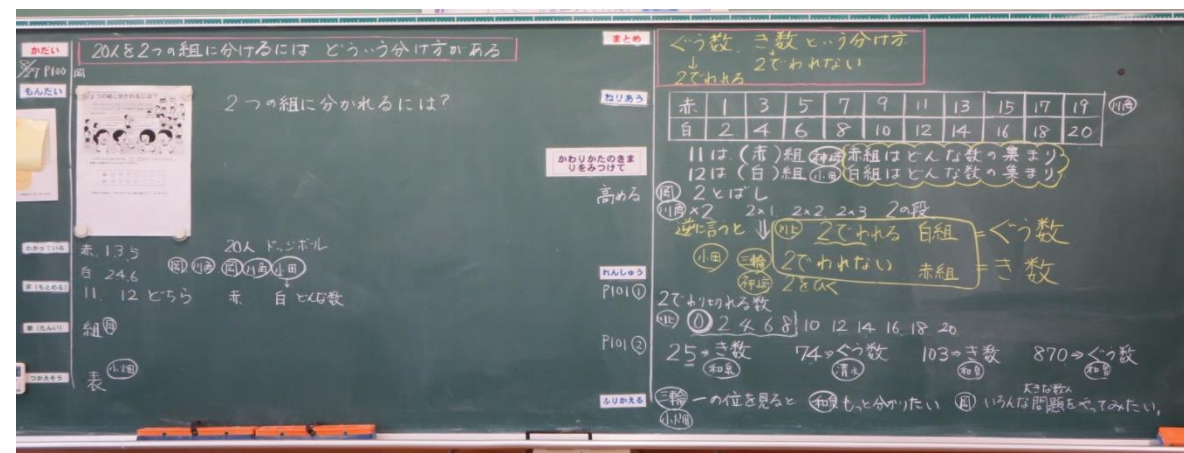 かだい
20人を2つの組に分けるには どういう分け方がある
8/27 P100 岡
もんだい
2つの組に分かれるには?
わかっている
赤 1.3.5
白 2.4.6
20人 ドッジボール
岡 川西 岡 川西 小田
求(もとめる)
11. 12 どちら 赤 白 どんな数
単(たんい)
組
つかえそう
表 小畑
まとめ
ぐう数、き数という分け方
↓ 2でわれない
2でわれる
ねりあう
赤 1 3 5 7 9 11 13 15 17 19 川西
白 2 4 6 8 10 12 14 16 18 20
かわりかたのきまりをみつけて
11は(赤)組 神崎 赤組はどんな数の集まり
12は(白)組 小田 白組はどんな数の集まり
高める
岡 2とばし
川西 ×2 2×1 2×2 2×3 2の段
逆に言うと ⇓ 川上 2でわれる 白組 =ぐう数
小田 三輪 2でわれない 赤組 =き数
神崎 2をひく
れんしゅう
P101① 2でわり切れる数
川上 0 2 4 6 8 10 12 14 16 18 20
P101② 25⇒き数 74⇒ぐう数 103⇒き数 870⇒ぐう数
和泉 清水 和泉 和泉
ふりかえる
三輪 一の位を見ると 和泉 もっと分かりたい 岡 いろんな問題をやってみたい。
小畑